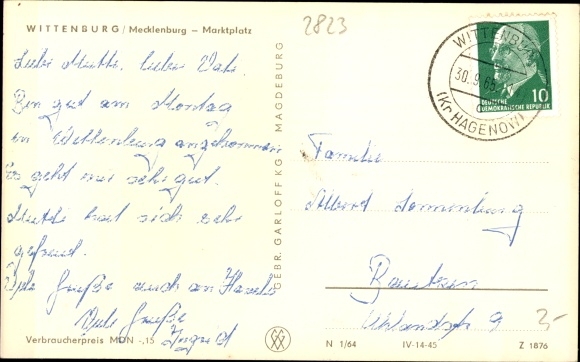 2823
WITTENBURG / Mecklenburg — Marktplatz
Liebe Mutti, lieber Vati.
Bin gut am Montag
in Wittenburg angekommen
Es geht mir sehr gut.
Mutti hat sich sehr
gefreut.
Viele Grüße auch an
Viele Grüße
Ingrid
Verbraucherpreis MDN -,15
GEBR. GARLOFF KG MAGDEBURG
WITTENBURG
30.9.65
(Kr HAGENOW)
10
DEUTSCHE
DEMOKRATISCHE REPUBLIK
Familie
Albert Sonnenburg
Bautzen
Uhlandstr 9
3,-
N 1/64 IV-14-45 Z 1876